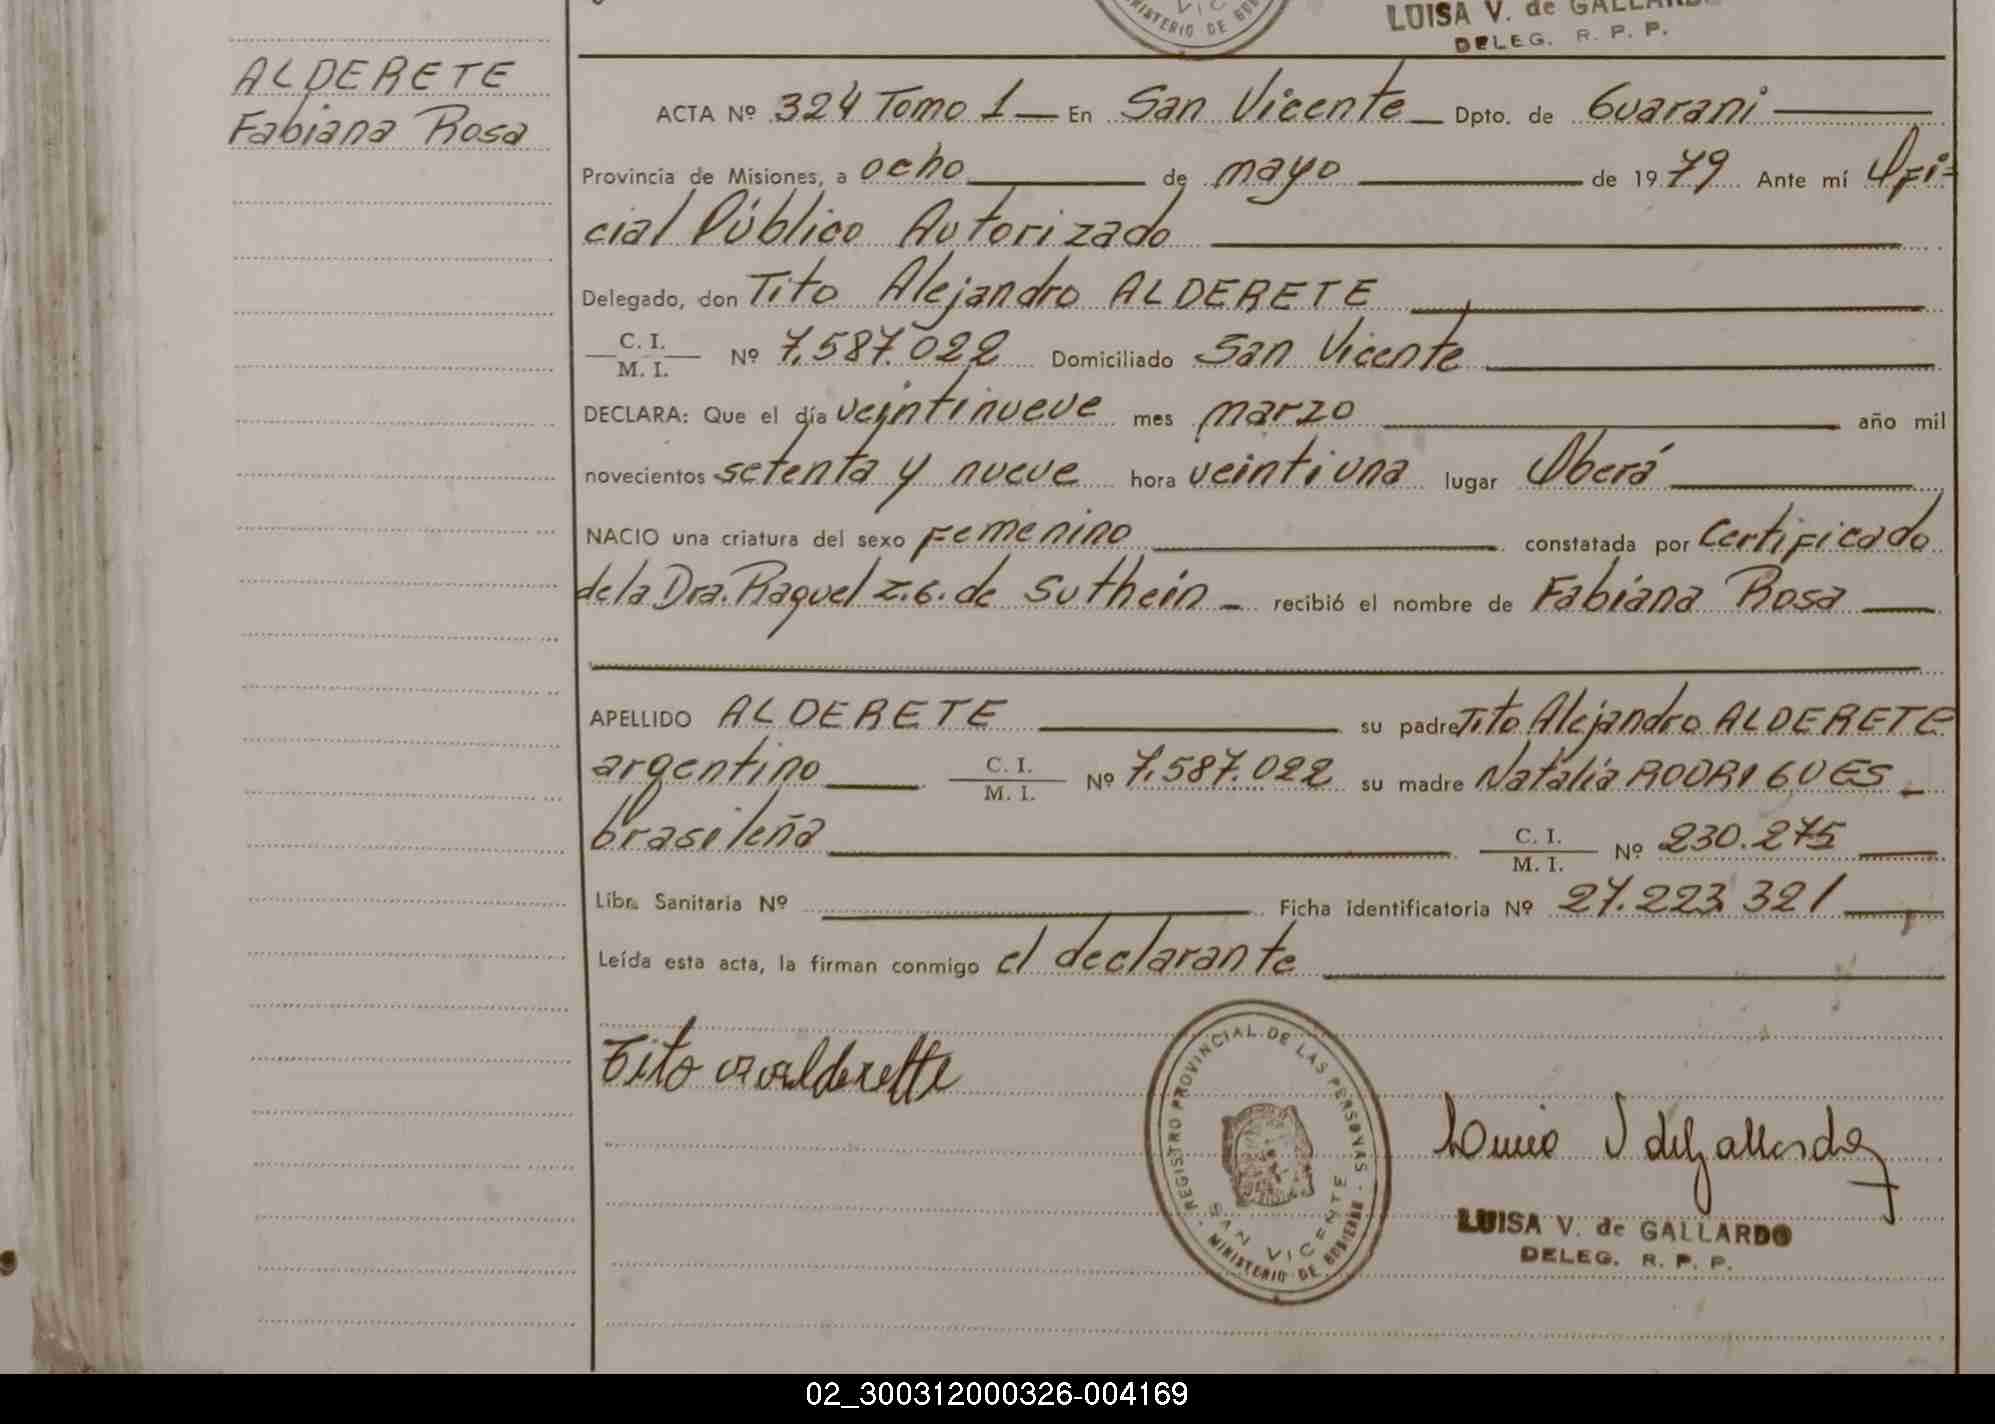 LUISA V. de GALLARDO
DELEG. R. P. P.
MINISTERIO DE GOBI
ALDERETE
Fabiana Rosa
ACTA Nº 324 Tomo 1 En San Vicente Dpto. de Guarani
Provincia de Misiones, a ocho de mayo de 1979 Ante mí Ofi=
cial Público Autorizado
Delegado, don Tito Alejandro ALDERETE
C. I.
M. I. Nº 7.587.022 Domiciliado San Vicente
DECLARA: Que el día veintinueve mes marzo año mil
novecientos setenta y nueve hora veintiuna lugar Oberá
NACIO una criatura del sexo Femenino constatada por Certificado
de la Dra. Raquel Z.G. de Suthein recibió el nombre de Fabiana Rosa
APELLIDO ALDERETE su padre Tito Alejandro ALDERETE
argentino C. I.
M. I. Nº 7.587.022 su madre Natalia RODRIGUES
brasileña C. I.
M. I. Nº 230.275
Libr. Sanitaria Nº Ficha identificatoria Nº 27.223.321
Leída esta acta, la firman conmigo el declarante
Tito
REGISTRO PROVINCIAL DE LAS PERSONAS
SAN VICENTE
MINISTERIO DE GOBIERNO
LUISA V. de GALLARDO
DELEG. R. P. P.
02_300312000326-004169